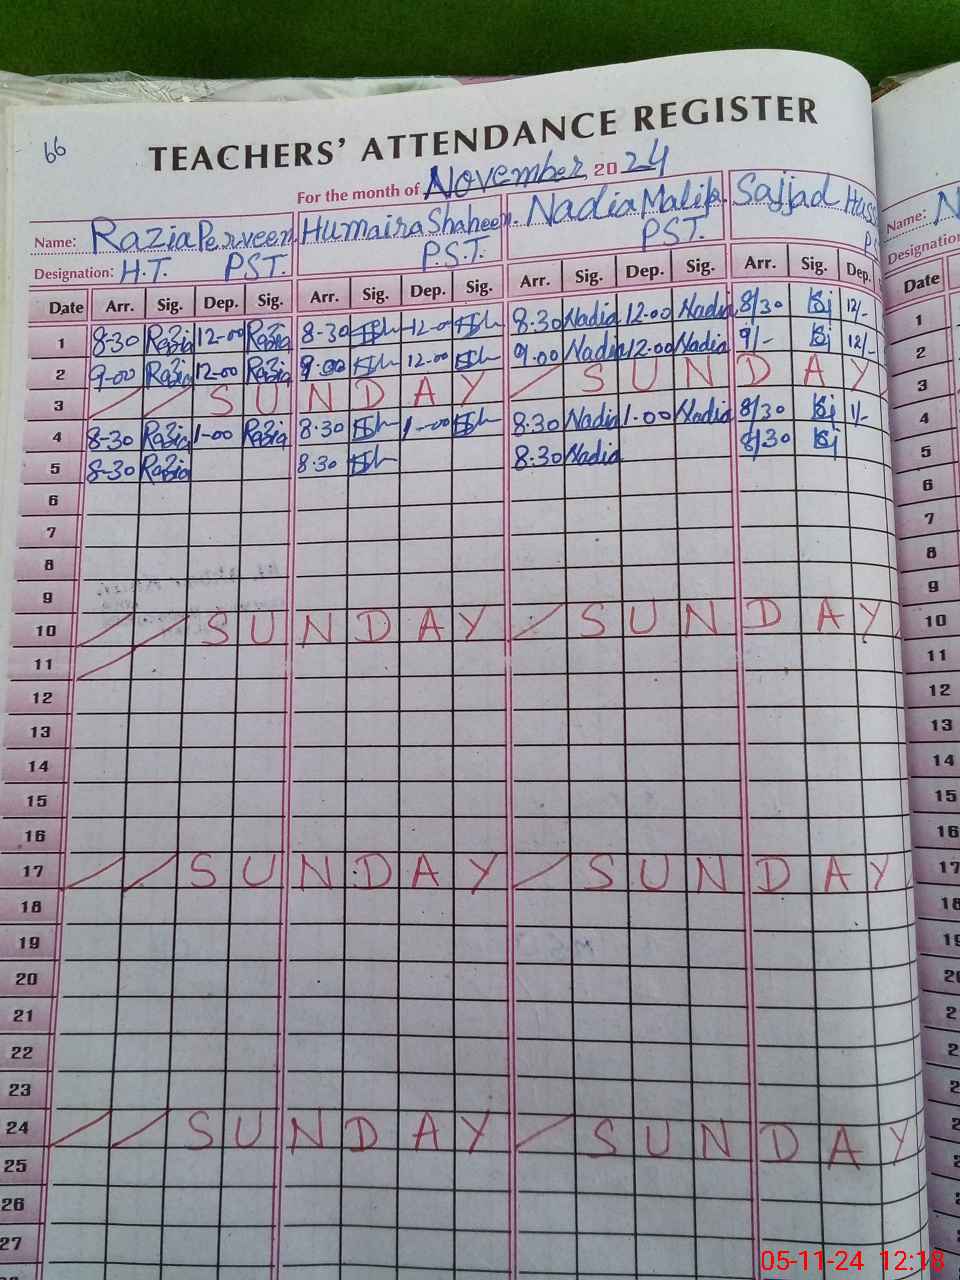 66
TEACHERS' ATTENDANCE REGISTER
For the month of November 2024
Name: Razia Perveen Humaira Shaheen. Nadia Malik Sajjad
Designation: H.T. PST. P.S.T. PST.
Date Arr. Sig. Dep. Sig. Arr. Sig. Dep. Sig. Arr. Sig. Dep. Sig. Arr. Sig. Dep.
1 8-30 Razia 12-00 Razia 8-30 12-00 8.30 Nadia 12.00 Nadia 8/30 12/-
2 9-00 Razia 12-00 Razia 9.00 12-00 9.00 Nadia 12.00 Nadia 9/- 12/-
3 SUNDAY SUNDAY
4 8-30 Razia 1-00 Razia 8.30 1-00 8.30 Nadia 1.00 Nadia 8/30 1/-
5 8-30 Razia 8.30 8.30 Nadia 8/30
6
7
8
9
10 SUNDAY SUNDAY
11
12
13
14
15
16
17 SUNDAY SUNDAY
18
19
20
21
22
23
24 SUNDAY SUNDAY
25
26
27
Name:
Designation
Date
1
2
3
4
5
6
7
8
9
10
11
12
13
14
15
16
17
18
05-11-24 12:18